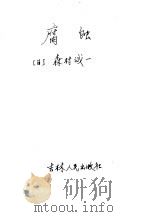 腐蚀
〔日〕森村诚一
吉林人民出版社